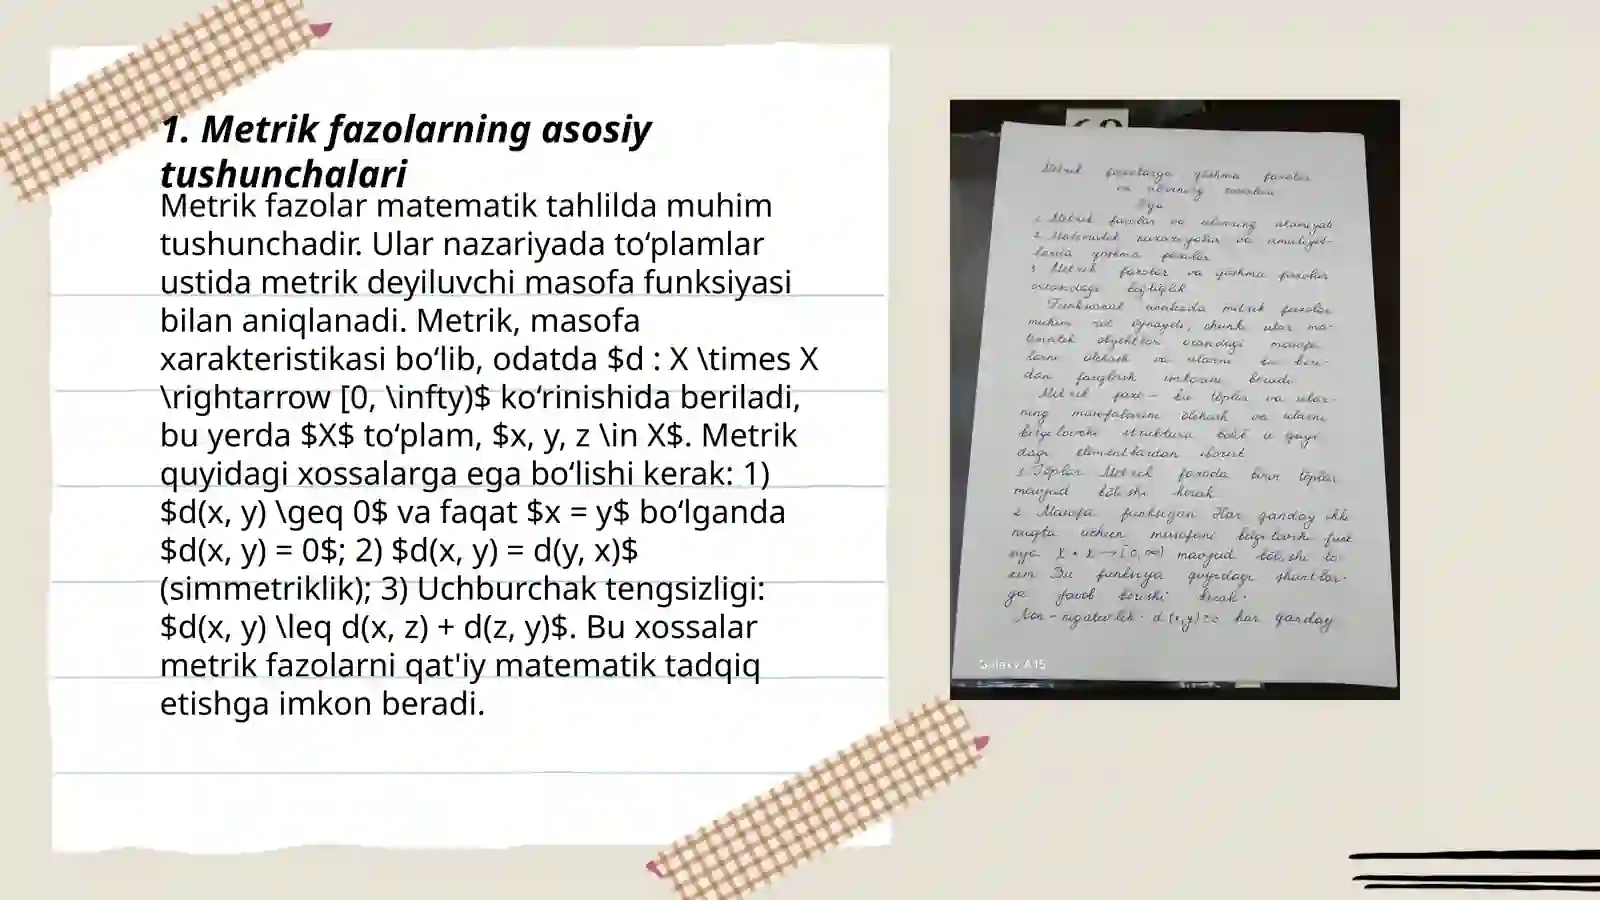 1. Metrik fazolarning asosiy
tushunchalari
Metrik fazolar matematik tahlilda muhim
tushunchadir. Ular nazariyada to‘plamlar
ustida metrik deyiluvchi masofa funksiyasi
bilan aniqlanadi. Metrik, masofa
xarakteristikasi bo‘lib, odatda $d : X \times X
\rightarrow [0, \infty)$ ko‘rinishida beriladi,
bu yerda $X$ to‘plam, $x, y, z \in X$. Metrik
quyidagi xossalarga ega bo‘lishi kerak: 1)
$d(x, y) \geq 0$ va faqat $x = y$ bo‘lganda
$d(x, y) = 0$; 2) $d(x, y) = d(y, x)$
(simmetriklik); 3) Uchburchak tengsizligi:
$d(x, y) \leq d(x, z) + d(z, y)$. Bu xossalar
metrik fazolarni qat'iy matematik tadqiq
etishga imkon beradi.
Metrik fazolarga qoshma fazolar
va ularning
1. Metrik fazolar va ularning
2. Matematik va
qoshma fazolar
3. Metrik fazolar va qoshma fazolar
orasidagi bog'liqlik
Funksional metrik fazolar
muhim rol oynaydi, chunki ular ma-
tematik obyektlar orasidagi masofa-
larni olchash va ularni bir biri-
dan farqlash imkonini beradi
Metrik fazo - bu toplam va ular-
ning masofalarini olchash va ularni
belgilovchi struktura bolib u quyi
dagi elementlardan iborat
1. Toplam Metrik fazoda biron toplam
mavjud bolishi kerak
2. Masofa funksiyasi Har qanday ikki
nuqta uchun masofani belgilovchi funk
siya X × X → [0, ∞) mavjud bolishi lo-
zim Bu funksiya quyidagi shartlar-
ga javob berishi kerak.
d(x,y) ≥ 0 har qanday
Galaxy A15